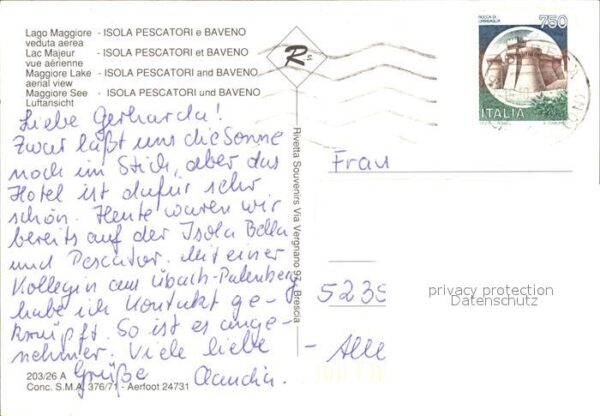 Lago Maggiore - ISOLA PESCATORI e BAVENO
veduta aerea
Lac Majeur - ISOLA PESCATORI et BAVENO
vue aérienne
Maggiore Lake - ISOLA PESCATORI and BAVENO
aerial view
Maggiore See - ISOLA PESCATORI und BAVENO
Luftansicht
Liebe Gerharda!
Zwar läßt uns die Sonne
noch im Stich, aber das
Hotel ist dafür sehr
schön. Heute waren wir
bereits auf der Isola Bella
und Pescator. Mit einer
Kollegin aus Übach-Palenberg
habe ich Kontakt ge-
knüpft. So ist es ange-
nehmer. Viele liebe
Grüße Claudia.
203/26 A
Conc. S.M.A. 376/71 - Aerfoot 24731
Rs
Rivetta Souvenirs Via Vergnano 97 - Brescia
ROCCA DI
URBISAGLIA
750
ITALIA
Frau
5235
- Alle
privacy protection
Datenschutz